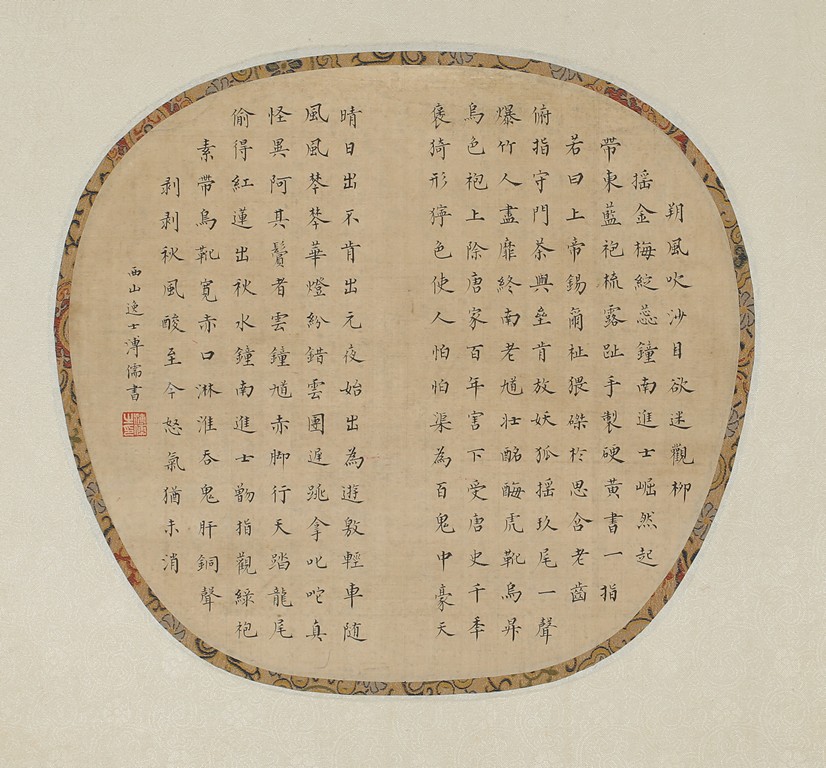 朔風吹沙目欲迷觀柳
揺金梅綻蕊鐘南進士崛然起
帶東藍袍梳露趾手製硬黃書一指
若曰上帝錫爾祉猥磔於思含老齒
俯指守門荼與壘肯放妖狐揺玖尾一聲
爆竹人盡靡終南老馗壯酩酶虎靴烏
烏色袍上除唐家百年害下受唐史千秊
褒猗形獰色使人怕怕渠為百鬼中豪天
晴日出不肯出元夜始出為遊敖輕車随
風風華燈紛錯雲團遅跳拿叱咜真
怪異阿其鬢者雲鐘馗赤脚行天踏龍尾
偷得紅蓮出秋水鐘南進士指觀綠袍
素帶烏靴寬赤口淋漼吞鬼肝銅聲
剥剥秋風酸至今怒氣猶未消
西山逸士溥儒書